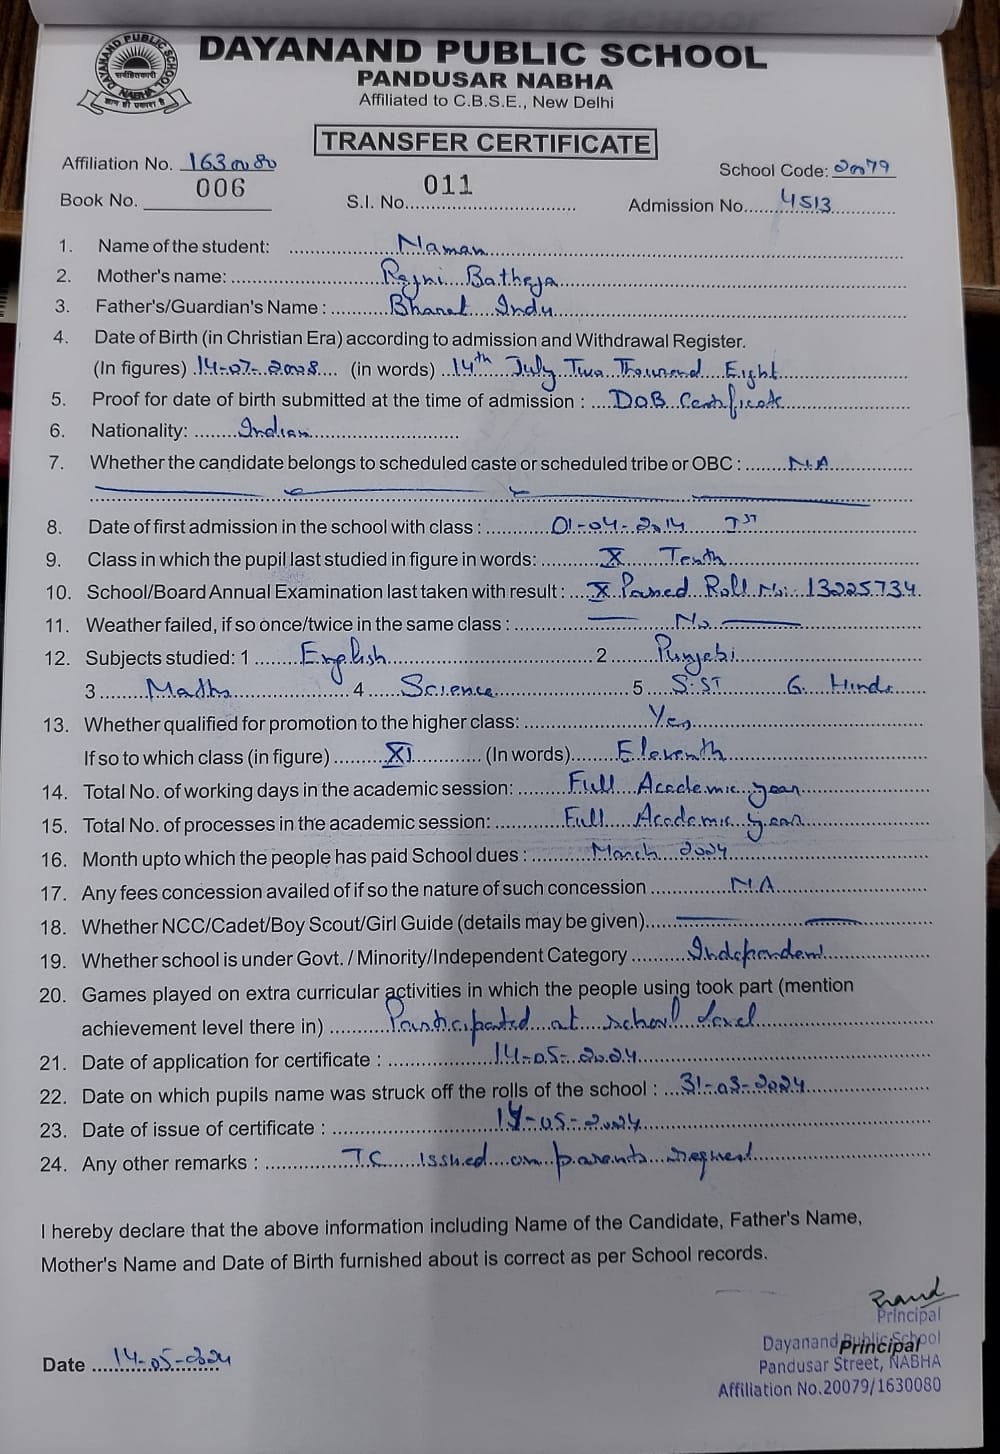 DAYANAND PUBLIC SCHOOL
PANDUSAR NABHA
Affiliated to C.B.S.E., New Delhi
DAYANAND PUBLIC SCHOOL
NABHA
TRANSFER CERTIFICATE
Affiliation No. 1630080
School Code: 20079
Book No. 006
S.I. No. 011
Admission No. 4513
1. Name of the student: Naman
2. Mother's name: Rajni Batheja
3. Father's/Guardian's Name : Bharat Indu
4. Date of Birth (in Christian Era) according to admission and Withdrawal Register.
(In figures) 14-07-2008 (in words) 14th July Two Thousand Eight
5. Proof for date of birth submitted at the time of admission : DOB Certificate
6. Nationality: Indian
7. Whether the candidate belongs to scheduled caste or scheduled tribe or OBC : N.A
8. Date of first admission in the school with class : 01-04-2014 IST
9. Class in which the pupil last studied in figure in words: X Tenth
10. School/Board Annual Examination last taken with result : X Passed Roll No: 13225734
11. Weather failed, if so once/twice in the same class : No
12. Subjects studied: 1 English 2 Punjabi
3 Maths 4 Science 5 S.ST 6. Hindi
13. Whether qualified for promotion to the higher class: Yes
If so to which class (in figure) XI (In words) Eleventh
14. Total No. of working days in the academic session: Full Academic year
15. Total No. of processes in the academic session: Full Academic year
16. Month upto which the people has paid School dues : March 2024
17. Any fees concession availed of if so the nature of such concession N.A
18. Whether NCC/Cadet/Boy Scout/Girl Guide (details may be given)
19. Whether school is under Govt. / Minority/Independent Category Independent
20. Games played on extra curricular activities in which the people using took part (mention
achievement level there in) Participated at school level
21. Date of application for certificate : 14-05-2024
22. Date on which pupils name was struck off the rolls of the school : 31-03-2024
23. Date of issue of certificate : 14-05-2024
24. Any other remarks : TC issued on parents request
I hereby declare that the above information including Name of the Candidate, Father's Name,
Mother's Name and Date of Birth furnished about is correct as per School records.
Principal
Dayanand Public School
Principal
Pandusar Street, NABHA
Affiliation No.20079/1630080
Date 14-05-2024